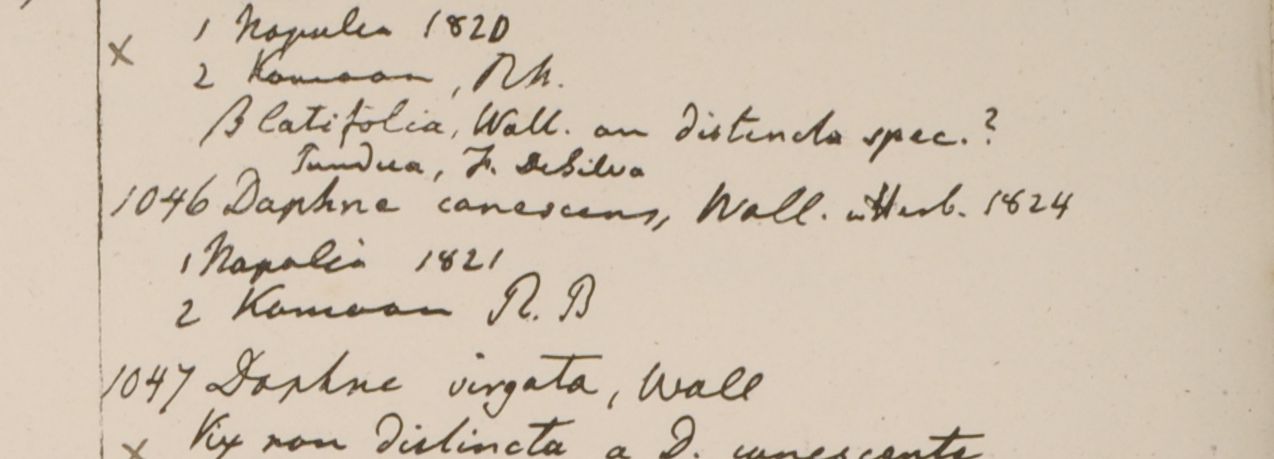 1 Napalia 1820
x
2 Kamaon, R.B.
β latifolia, Wall. an distincta spec.?
Tundua, F. DeSilva
1046 Daphne canescens, Wall. in Herb. 1824
1 Napalia 1821
2 Kamaon R. B
1047 Daphne virgata, Wall
x Vix non distincta a D. canescente